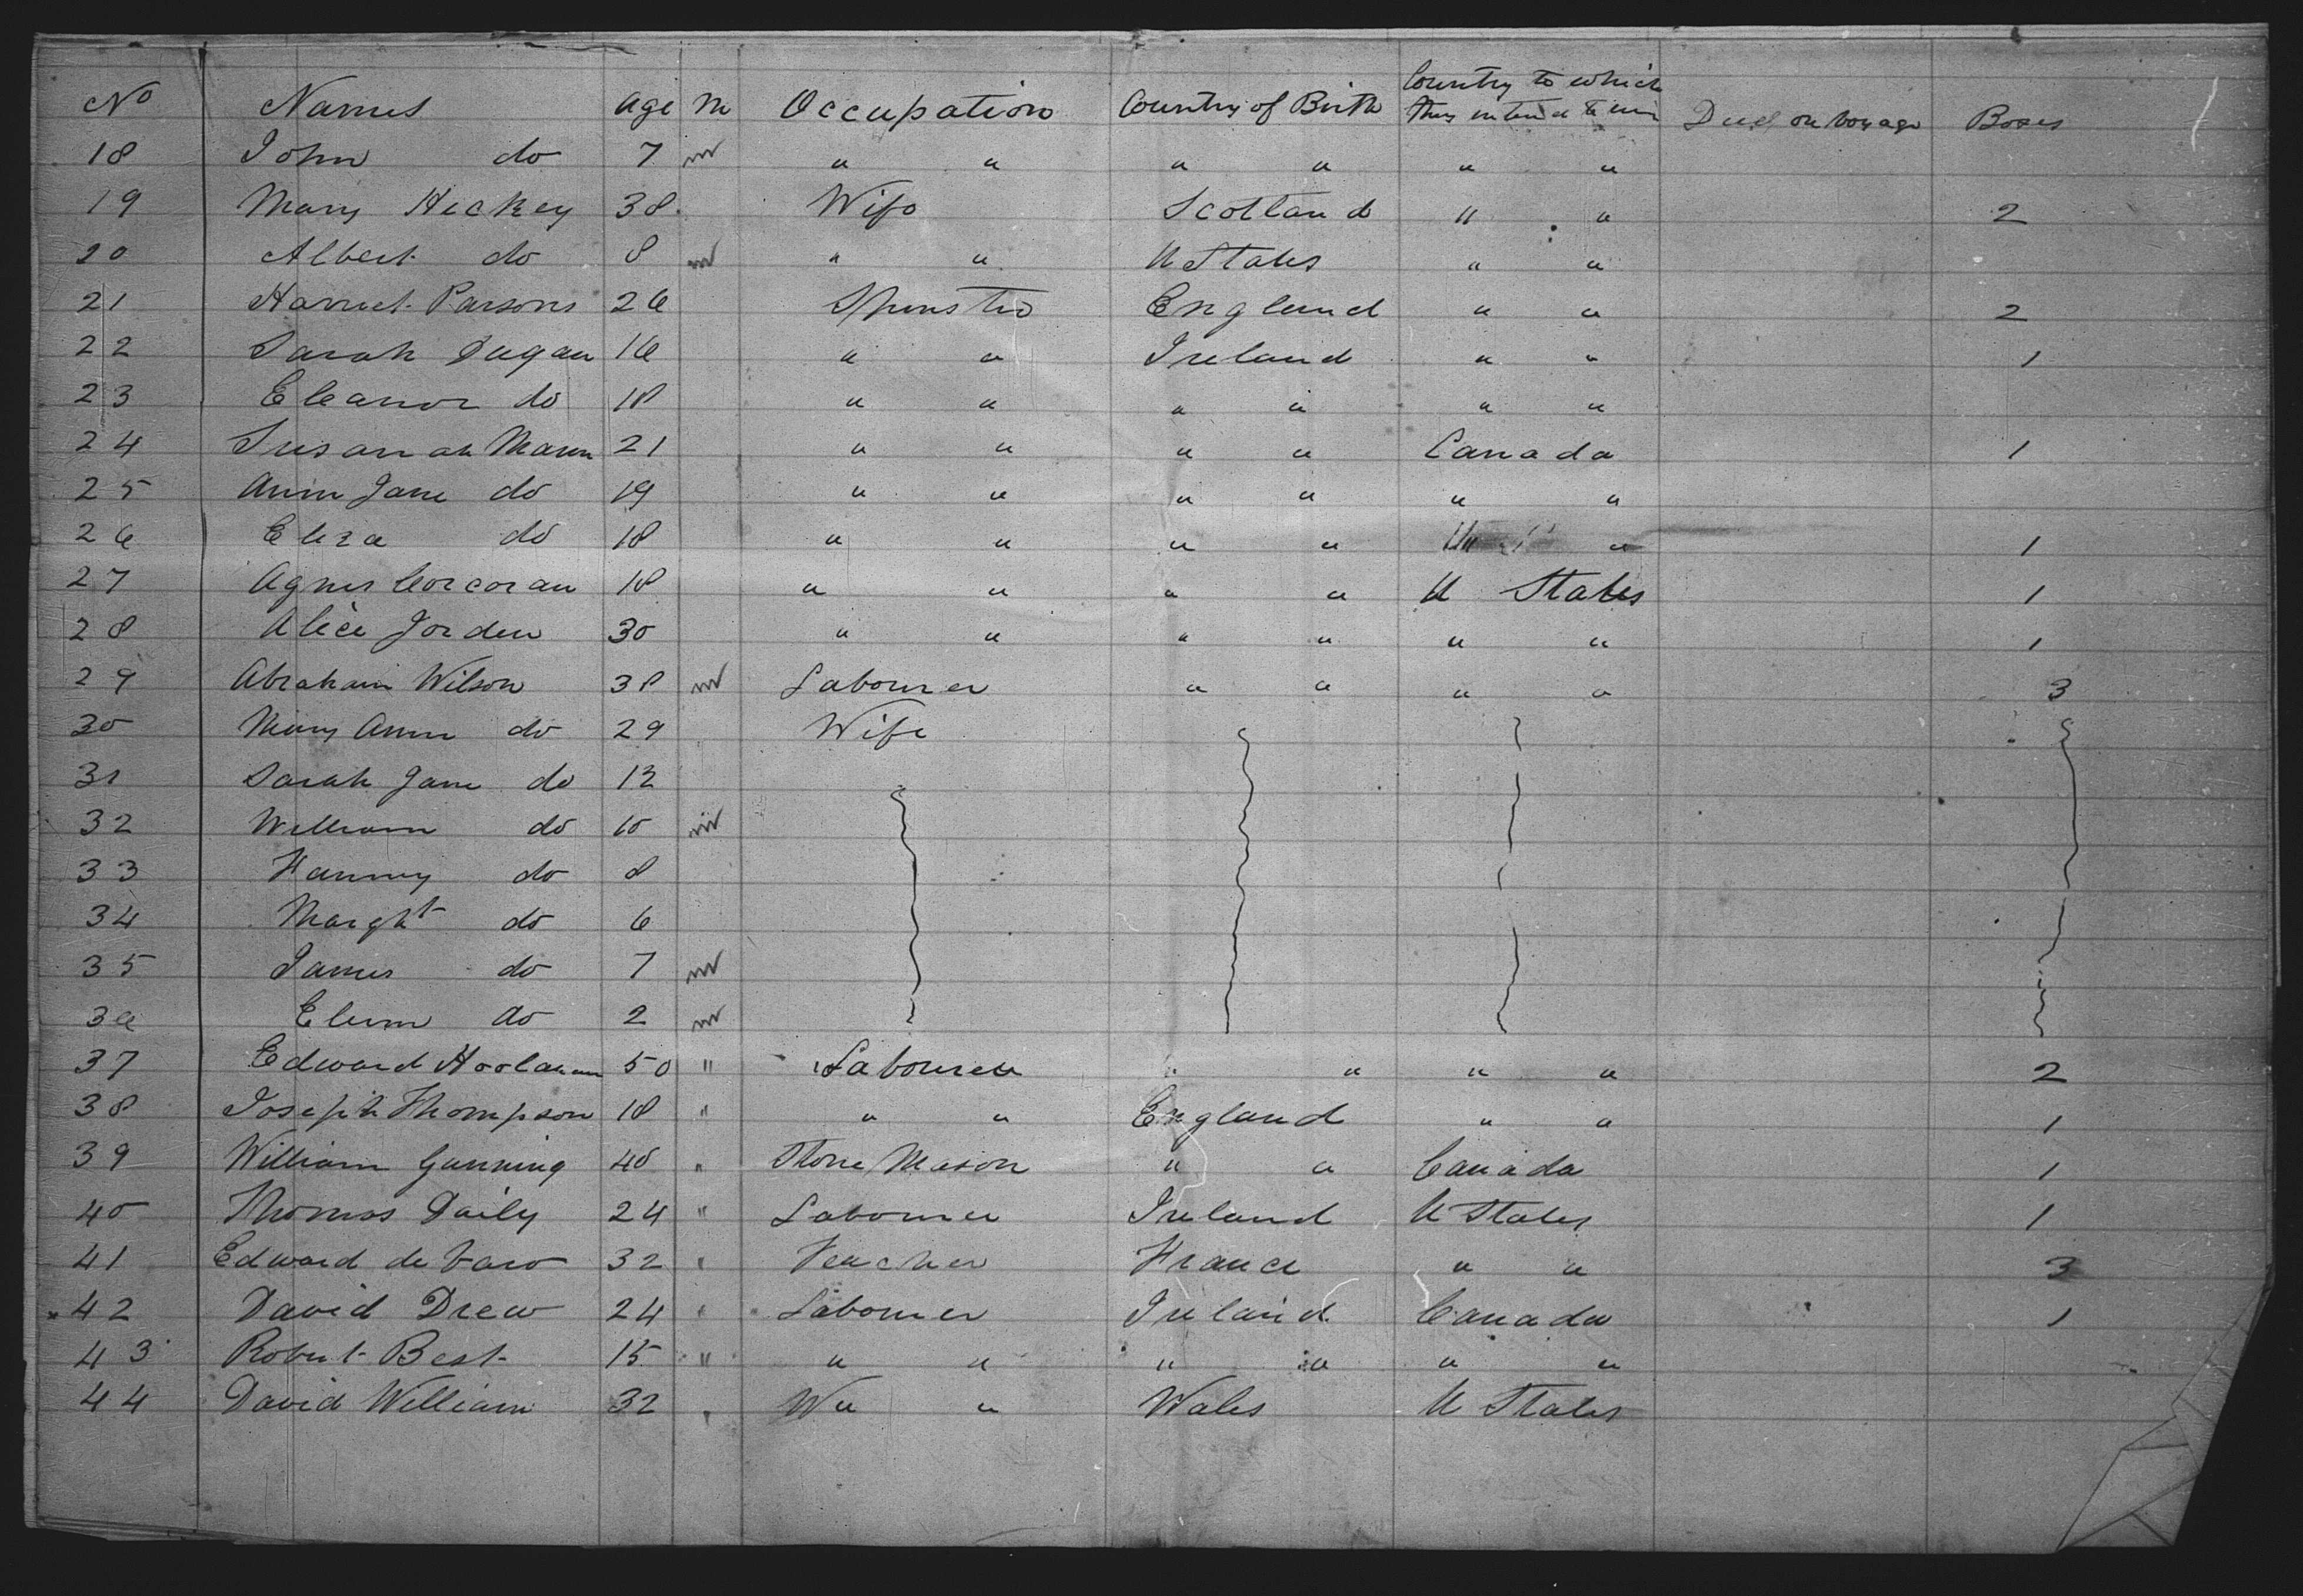 No Names Age M Occupation Country of Birth Country to which they intend to Died on Voyage Boxes
18 John do 7 m " " " " " "
19 Mary Heckey 38 Wife Scotland " " 2
20 Albert do 8 m " " U States " "
21 Harriet Parsons 26 Spinster England " " 2
22 Sarah Dugan 16 " " Ireland " " 1
23 Eleanor do 18 " " " " " "
24 Susanah Mann 21 " " " " Canada 1
25 Ann Jane do 19 " " " " " "
26 Eliza do 18 " " " " " " 1
27 Agnes Corcoran 18 " " " " U States 1
28 Alice Jorden 30 " " " " " " 1
29 Abraham Wilson 38 m Labourer " " " " 3
30 Mary Ann do 29 Wife
31 Sarah Jane do 12
32 William do 10 m
33 Fanny do 8
34 Marght do 6
35 James do 7 m
36 do 2 m
37 Edward Hoolahan 50 " Labourer " " " " 2
38 Joseph Thompson 18 " " " England " " 1
39 William Gunning 40 " Stone Mason " " Canada 1
40 Thomas Daily 24 " Labourer Ireland U States 1
41 Edward de 32 " Teacher France " " 3
42 David Drew 24 " Labourer Ireland Canada 1
43 Robert Best 15 " " " " " " "
44 David William 32 " " " Wales U States